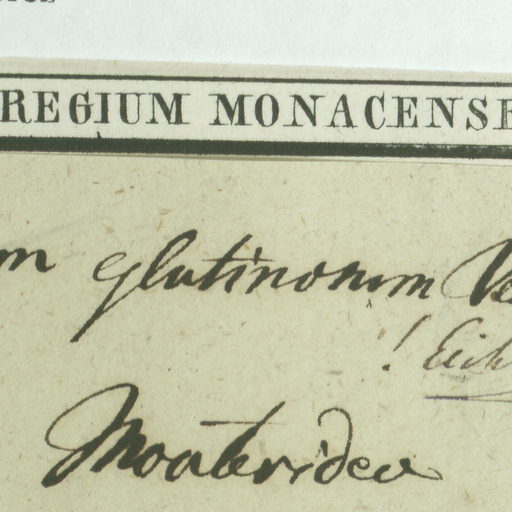 REGIUM MONACENSE
m glutinosum Ve
! Eich
Montevideo